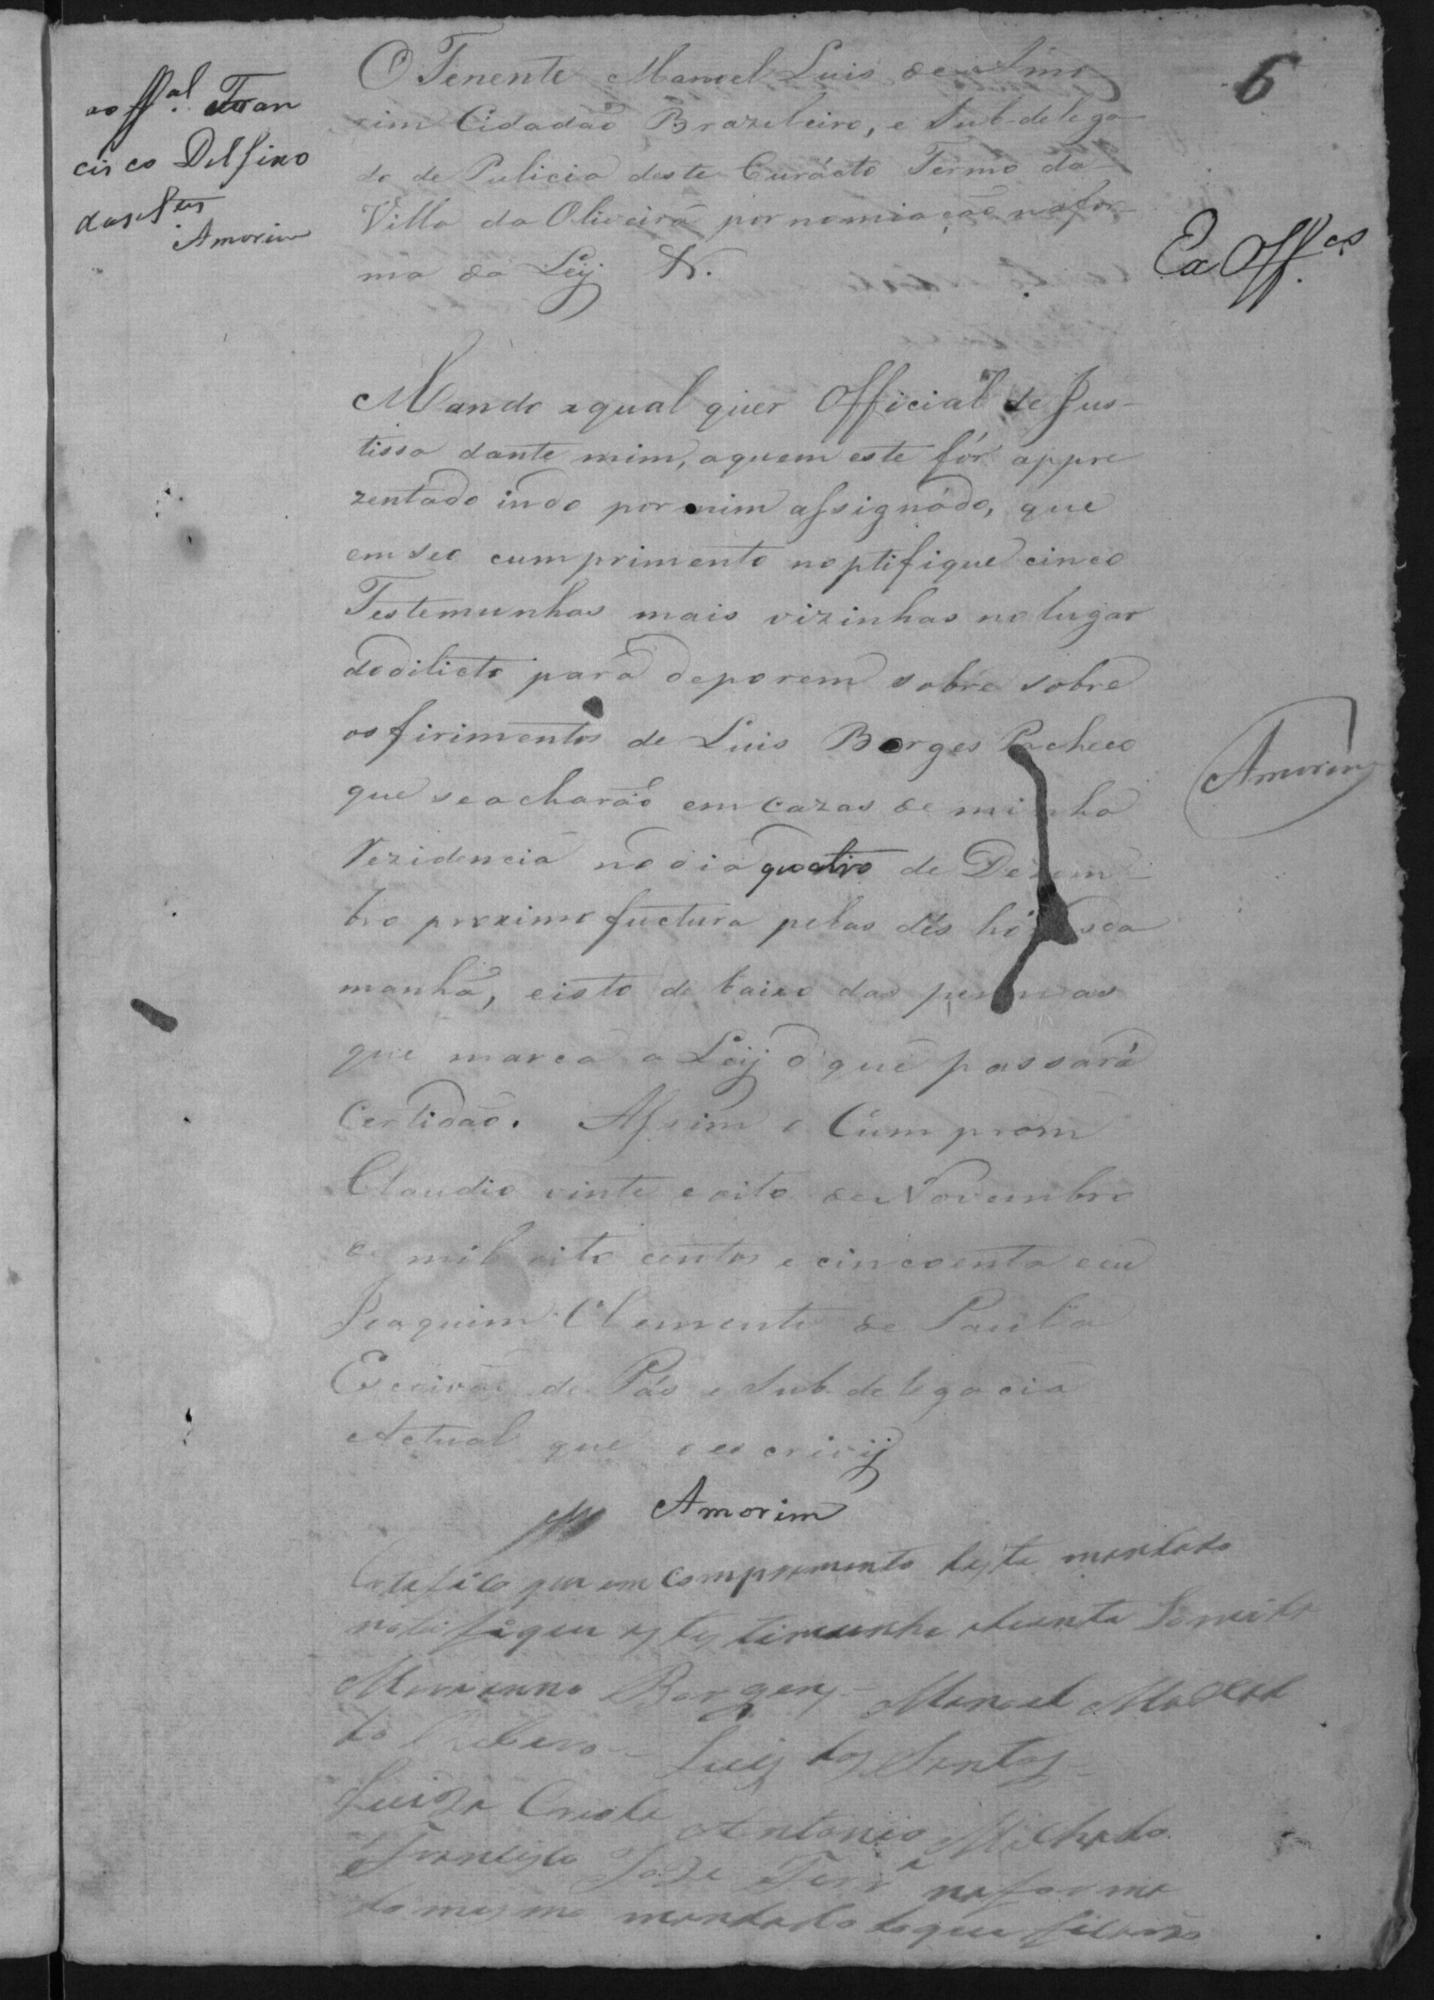 6
ao Off.al Fran
cisco Delfino
dos S.tos
Amorim
O Tenente Manoel Luis de Amo
rim Cidadão Brazileiro, e Sub-delega-
do de Pulicia deste Curácto Termo da
Villa da Oliveira por nomiação na for-
ma da Leÿ &.
Ex Off.co
Mando aqual quer Official de Jus-
tissa dante mim, aquem este fôr appre
zentado indo por mim assignádo, que
em seo cumprimento noptifique cinco
Testemunhas mais vizinhas no lugar
do dilicto pará deporem sobre sobre
os firimentos de Luis Borges Pacheco
que se acharáõ em cazas de minha
Rezidencia no dia quatro de Dezem-
bro proximo fuctura pelas dés hóras da
manhã, eisto de baixo das pennas
que marca a Leÿ do que passará
Certidaõ. Assim o Cumpram
Claudio vinte e oito de Novembro
de mil oito centos e cincoenta e eu
Joaquim Clemente de Paula
Escrivaõ de Pás e Sub. delegacia
Actual que o escrivÿ
Amorim
Amorim
Certefico que em comprimento deste mandado
notifiquei as testimunha
Marianno Borges - Manoel Machad
do Ribeiro - Luis dos Santos -
Luiza Criola Antonio Machado
Francisco Joze na forma
do mesmo mandado do que ficaraõ